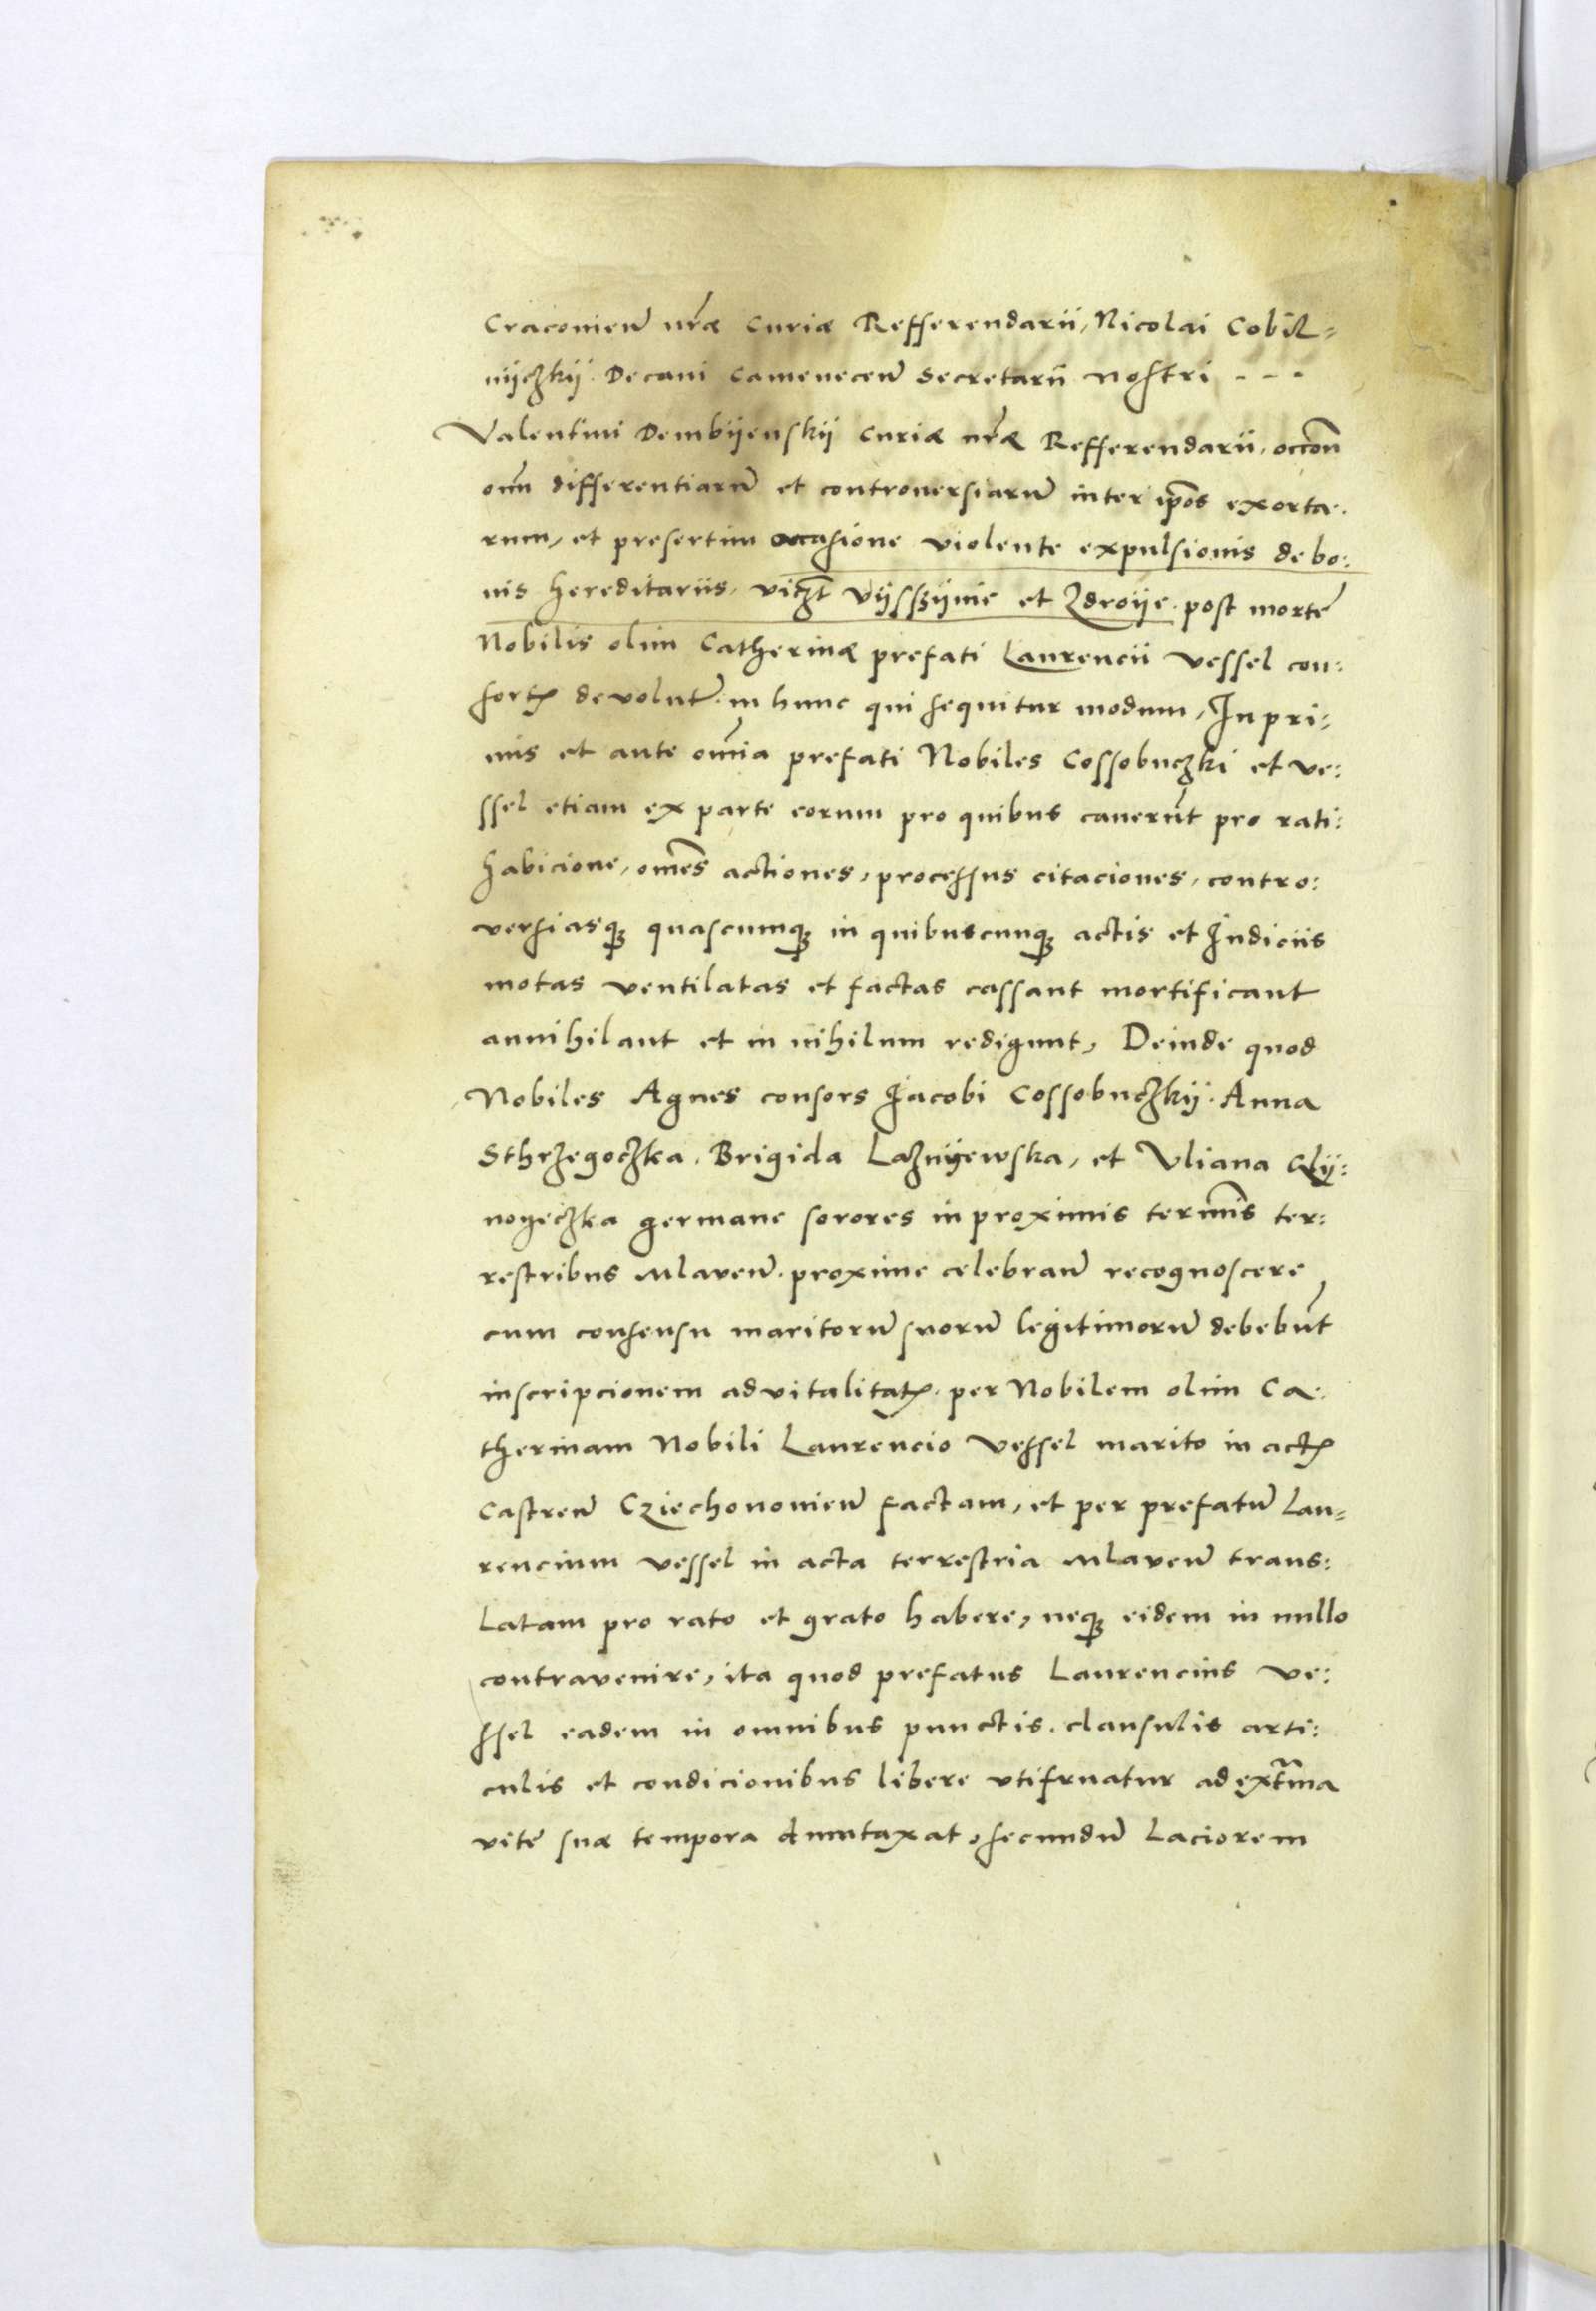 Craconien̄ nr̄æ Curiæ Refferendarii, Nicolai Cobil=
nijczkij. Decani Camenecen̄ Secretarii nostri - - -
Valentini Dembijenskij Curiæ nr̄æ Refferendarii, occōn
om̄ differentiarū et controversiarū inter ip̄os exorta.
rum, et presertim occasione violente expulsionis de bo:
nis hereditariis, viczt Vijsszijnie et Zdroije. post mortē
Nobilis olim Catherinæ prefati Laurencii Vessel con:
sortꝭ devolutꝭ. in hunc qui sequitur modum, In pri:
mis et ante om̄ia prefati Nobiles Cossobuczki et Ve:
ssel etiam ex parte eorum pro quibus caverūt pro rati:
habicione, om̄es actiones, processus citaciones, contro:
versiasqꝫ quascumqꝫ in quibuscunqꝫ actis et Iudiciis
motas ventilatas et factas cassant mortificant
annihilant et in nihilum redigunt, Deinde quod
Nobiles Agnes consors Jacobi Cossobuczkij. Anna
Sthrzegoczka. Brigida Laznijewska, et Vliana Glij:
noyeczka germane sorores in proximis termīs ter:
restribus Mlaven̄. proxime celebran̄ recognoscere
cum consensu maritorū suorū legitimorū debebūt
inscripcionem advitalitatꝭ. per Nobilem olim Ca.
therinam Nobili Laurencio Vessel marito in actꝭ
Castren̄ Cziechonovien̄ factam, et per prefatū Lau=
rencium Vessel in acta terrestria Mlaven̄ trans:
latam pro rato et grato habere, neqꝫ eidem in nullo
contravenire, ita quod prefatus Laurencius Ve:
ssel eadem in omnibus punctis. clausulis arti:
culis et condicionibus libere vtifruatur ad extr̄ma
vite suæ tempora dumtaxat, secundū laciorem